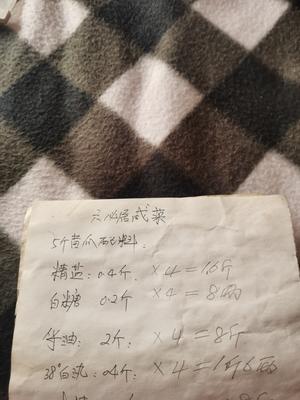 六必居咸菜
5斤黄瓜配料:
精盐: 0.4斤. ×4=1.6斤
白糖 0.2斤 ×4=8两
酱油: 2斤: ×4=8斤
38°白酒: 0.4斤: ×4=1斤6两